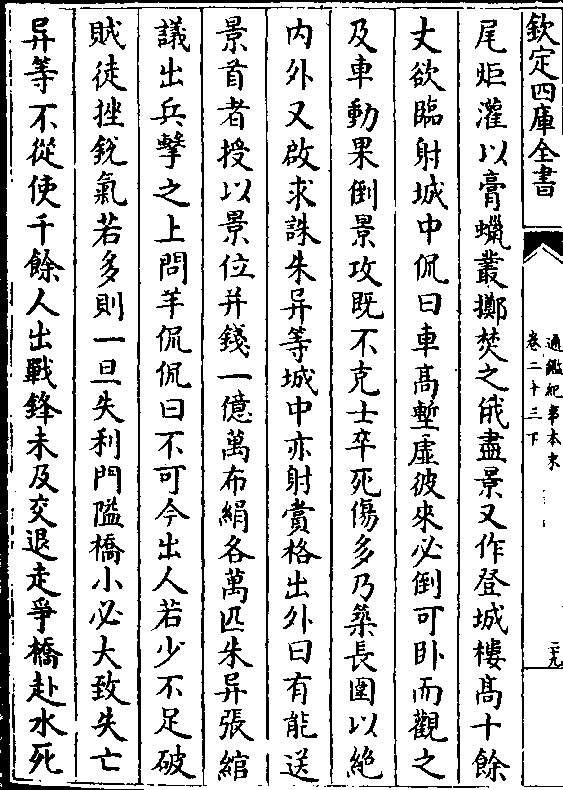 欽定四庫全書
通鑑紀事本末
卷二十三下
二九
尾炬灌以膏蠟叢擲焚之俄盡景又作登城樓髙十餘
丈欲臨射城中侃曰車髙塹虚彼來必倒可卧而觀之
及車動果倒景攻既不克士卒死傷多乃築長圍以絶
内外又啟求誅朱异等城中亦射賞格出外曰有能送
景首者授以景位并錢一億萬布絹各萬匹朱异張綰
議出兵擊之上問羊侃侃曰不可今出人若少不足破
賊徒挫銳氣若多則一旦失利門隘橋小必大致失亡
异等不從使千餘人出戰鋒未及交退走爭橋赴水死